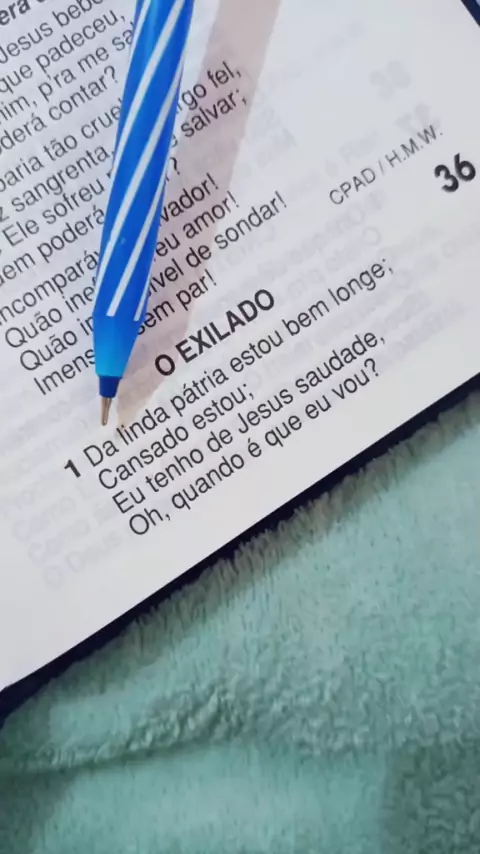 Jesus bebe
que padeceu,
p'ra me sa
derá contar?
tão cruel
go fel,
sangrenta,
salvar;
Ele sofreu
?
poderá
vador!
eu amor!
Quão
vel de sondar!
Quão
sem par!
CPAD / H.M.W.
36
O EXILADO
1 Da linda pátria estou bem longe;
Cansado estou;
Eu tenho de Jesus saudade,
Oh, quando é que eu vou?